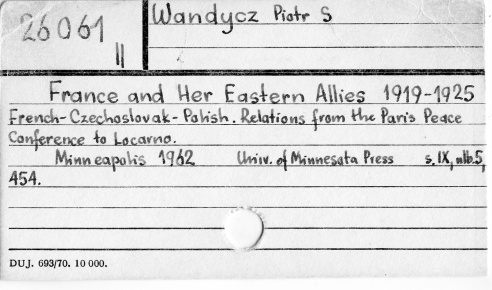 26061
II
Wandycz Piotr S
France and Her Eastern Allies 1919-1925
French-Czechoslovak-Polish. Relations from the Paris Peace
Conference to Locarno.
Minneapolis 1962 Univ. of Minnesota Press s. IX, nlb. 5,
454.
DUJ. 693/70. 10 000.